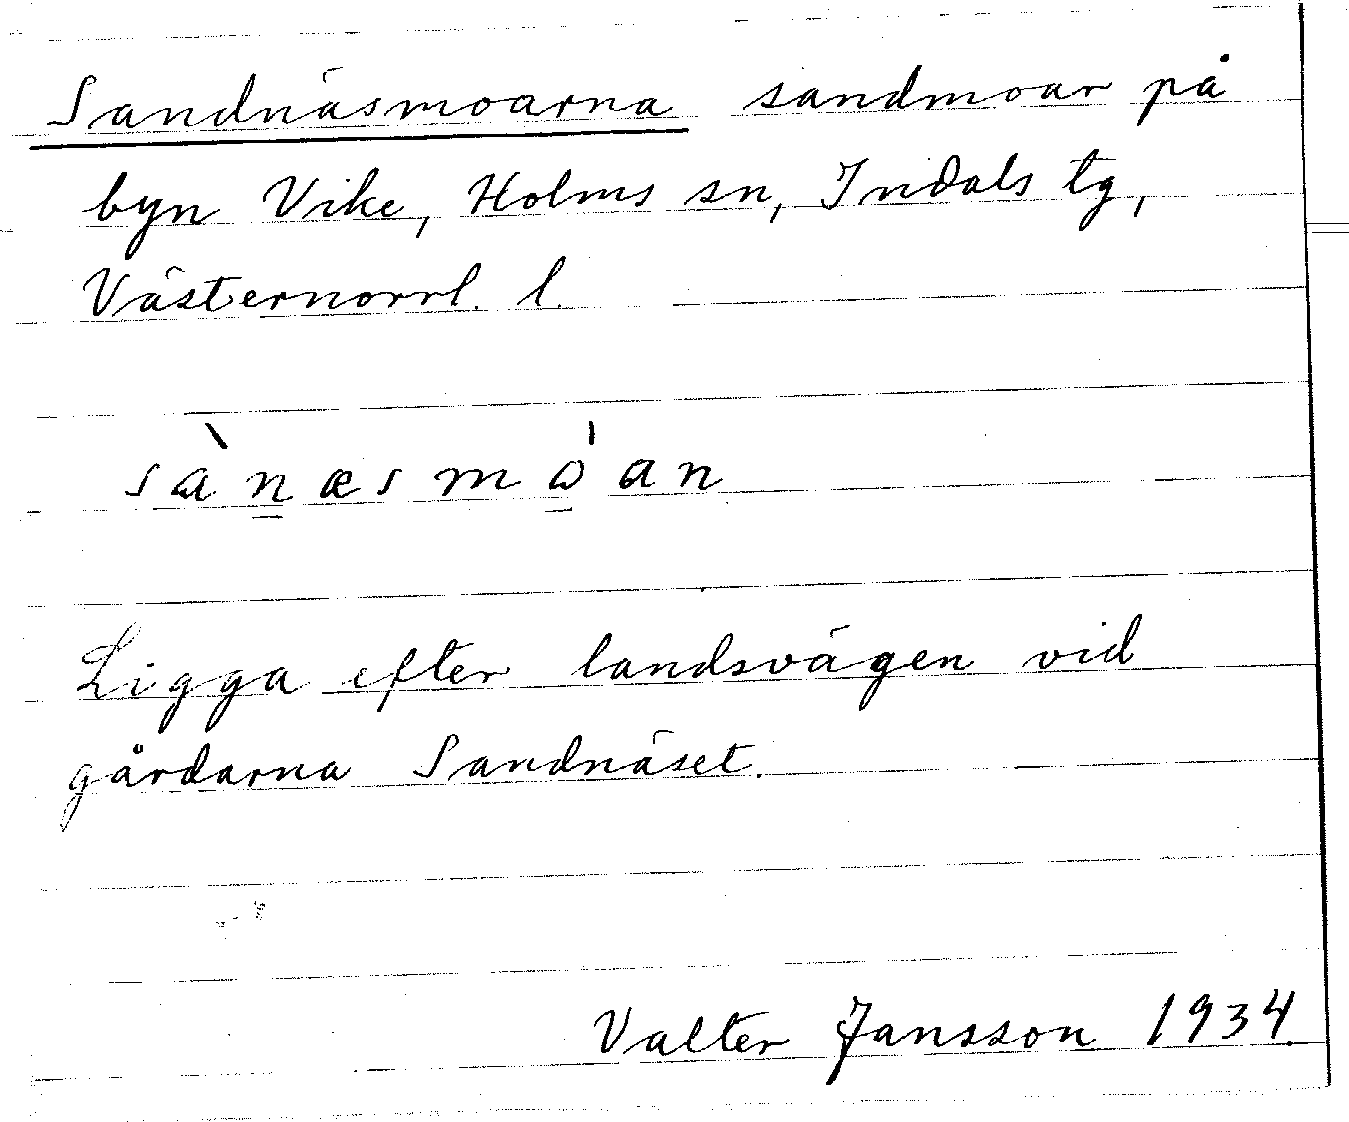 Sandnäsmoarna sandmoar på
byn Vike, Holms sn, Indals tg,
Västernorrl. l.
sànæsmo̍an
Ligga efter landsvägen vid
gårdarna Sandnäset.
Valter Jansson 1934